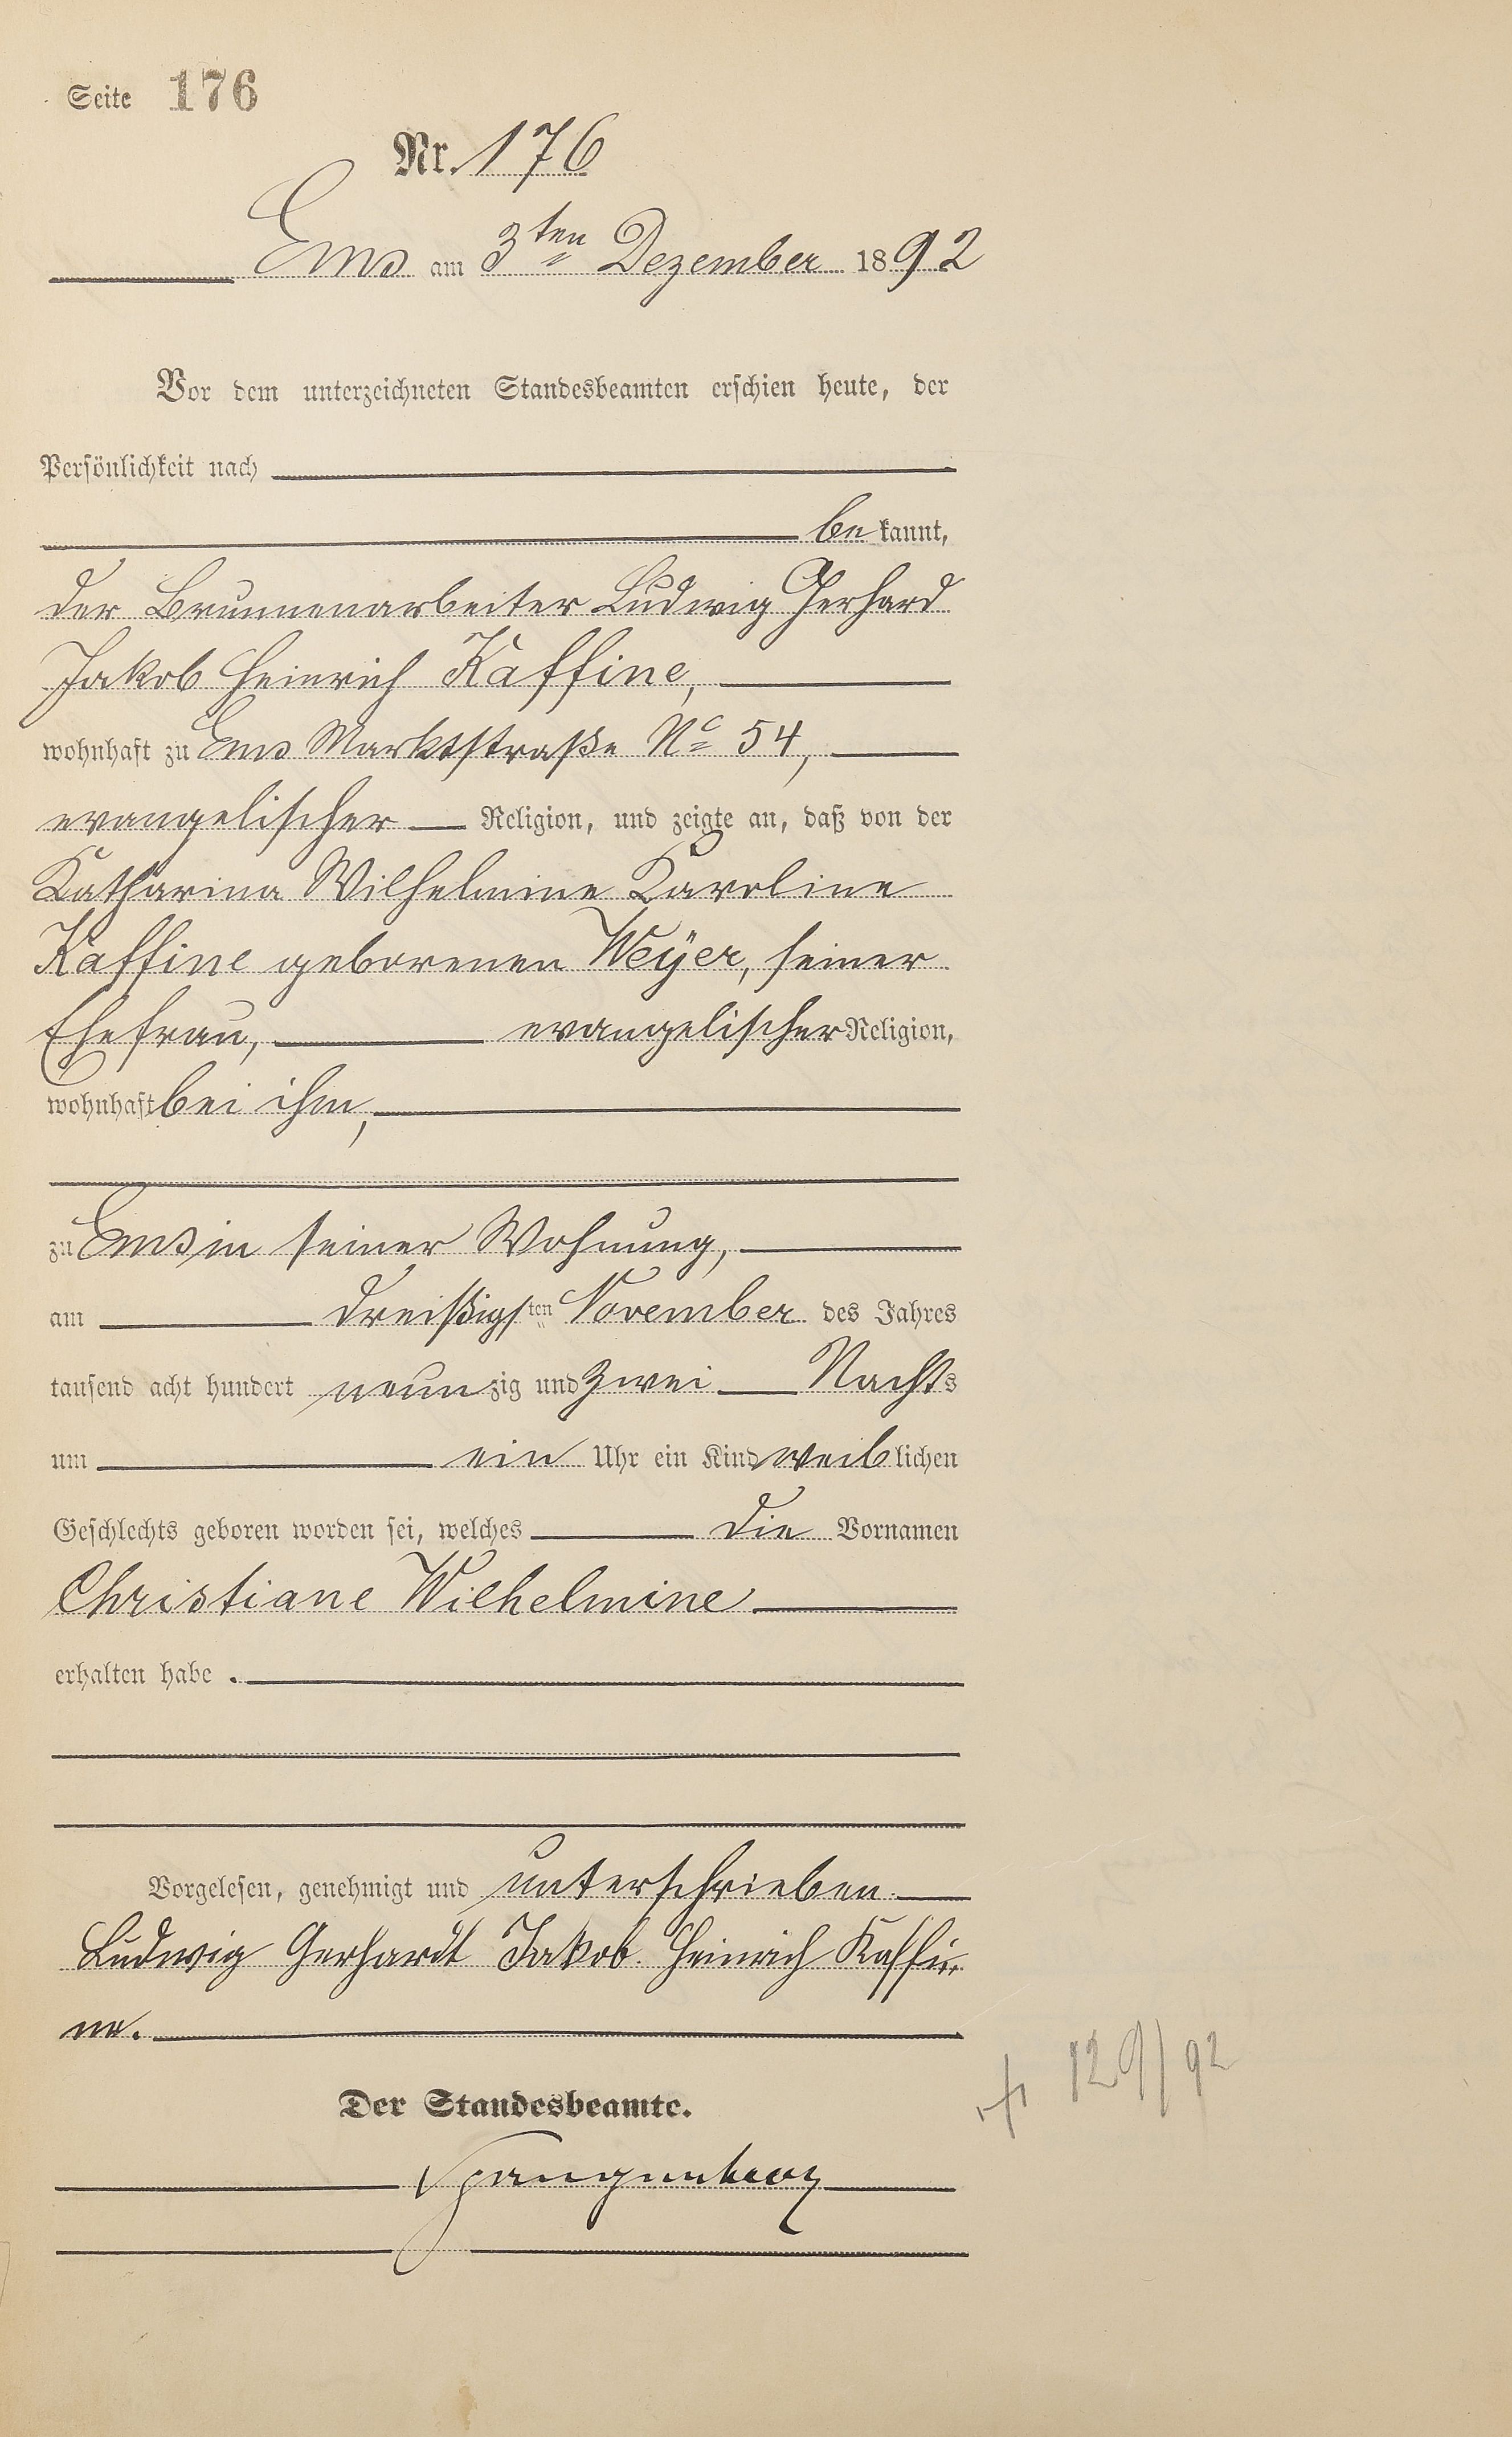 Seite 176
Nr. 176
Ems am 3ten Dezember 1892
Vor dem unterzeichneten Standesbeamten erschien heute, der
Persönlichkeit nach
bekannt,
der Brunnenarbeiter Ludwig Gerhard
Jakob Heinrich Kaffine,
wohnhaft zu Ems Marktstraße No 54,
evangelischer Religion, und zeigte an, daß von der
Katharina Wilhelmine Karoline
Kaffine geborenen Weÿer, seiner
Ehefrau, evangelischer Religion,
wohnhaft bei ihm,
zu Ems in seiner Wohnung,
am dreißigsten November des Jahres
tausend acht hundert neunzig und zwei Nachts
um ein Uhr ein Kind weiblichen
Geschlechts geboren worden sei, welches die Vornamen
Christiane Wilhelmine
erhalten habe.
Vorgelesen, genehmigt und unterschrieben.
Ludwig Gerhardt Jakob Heinrich Kaffi-
ne.
Der Standesbeamte.
Spangenberg
† 129/92